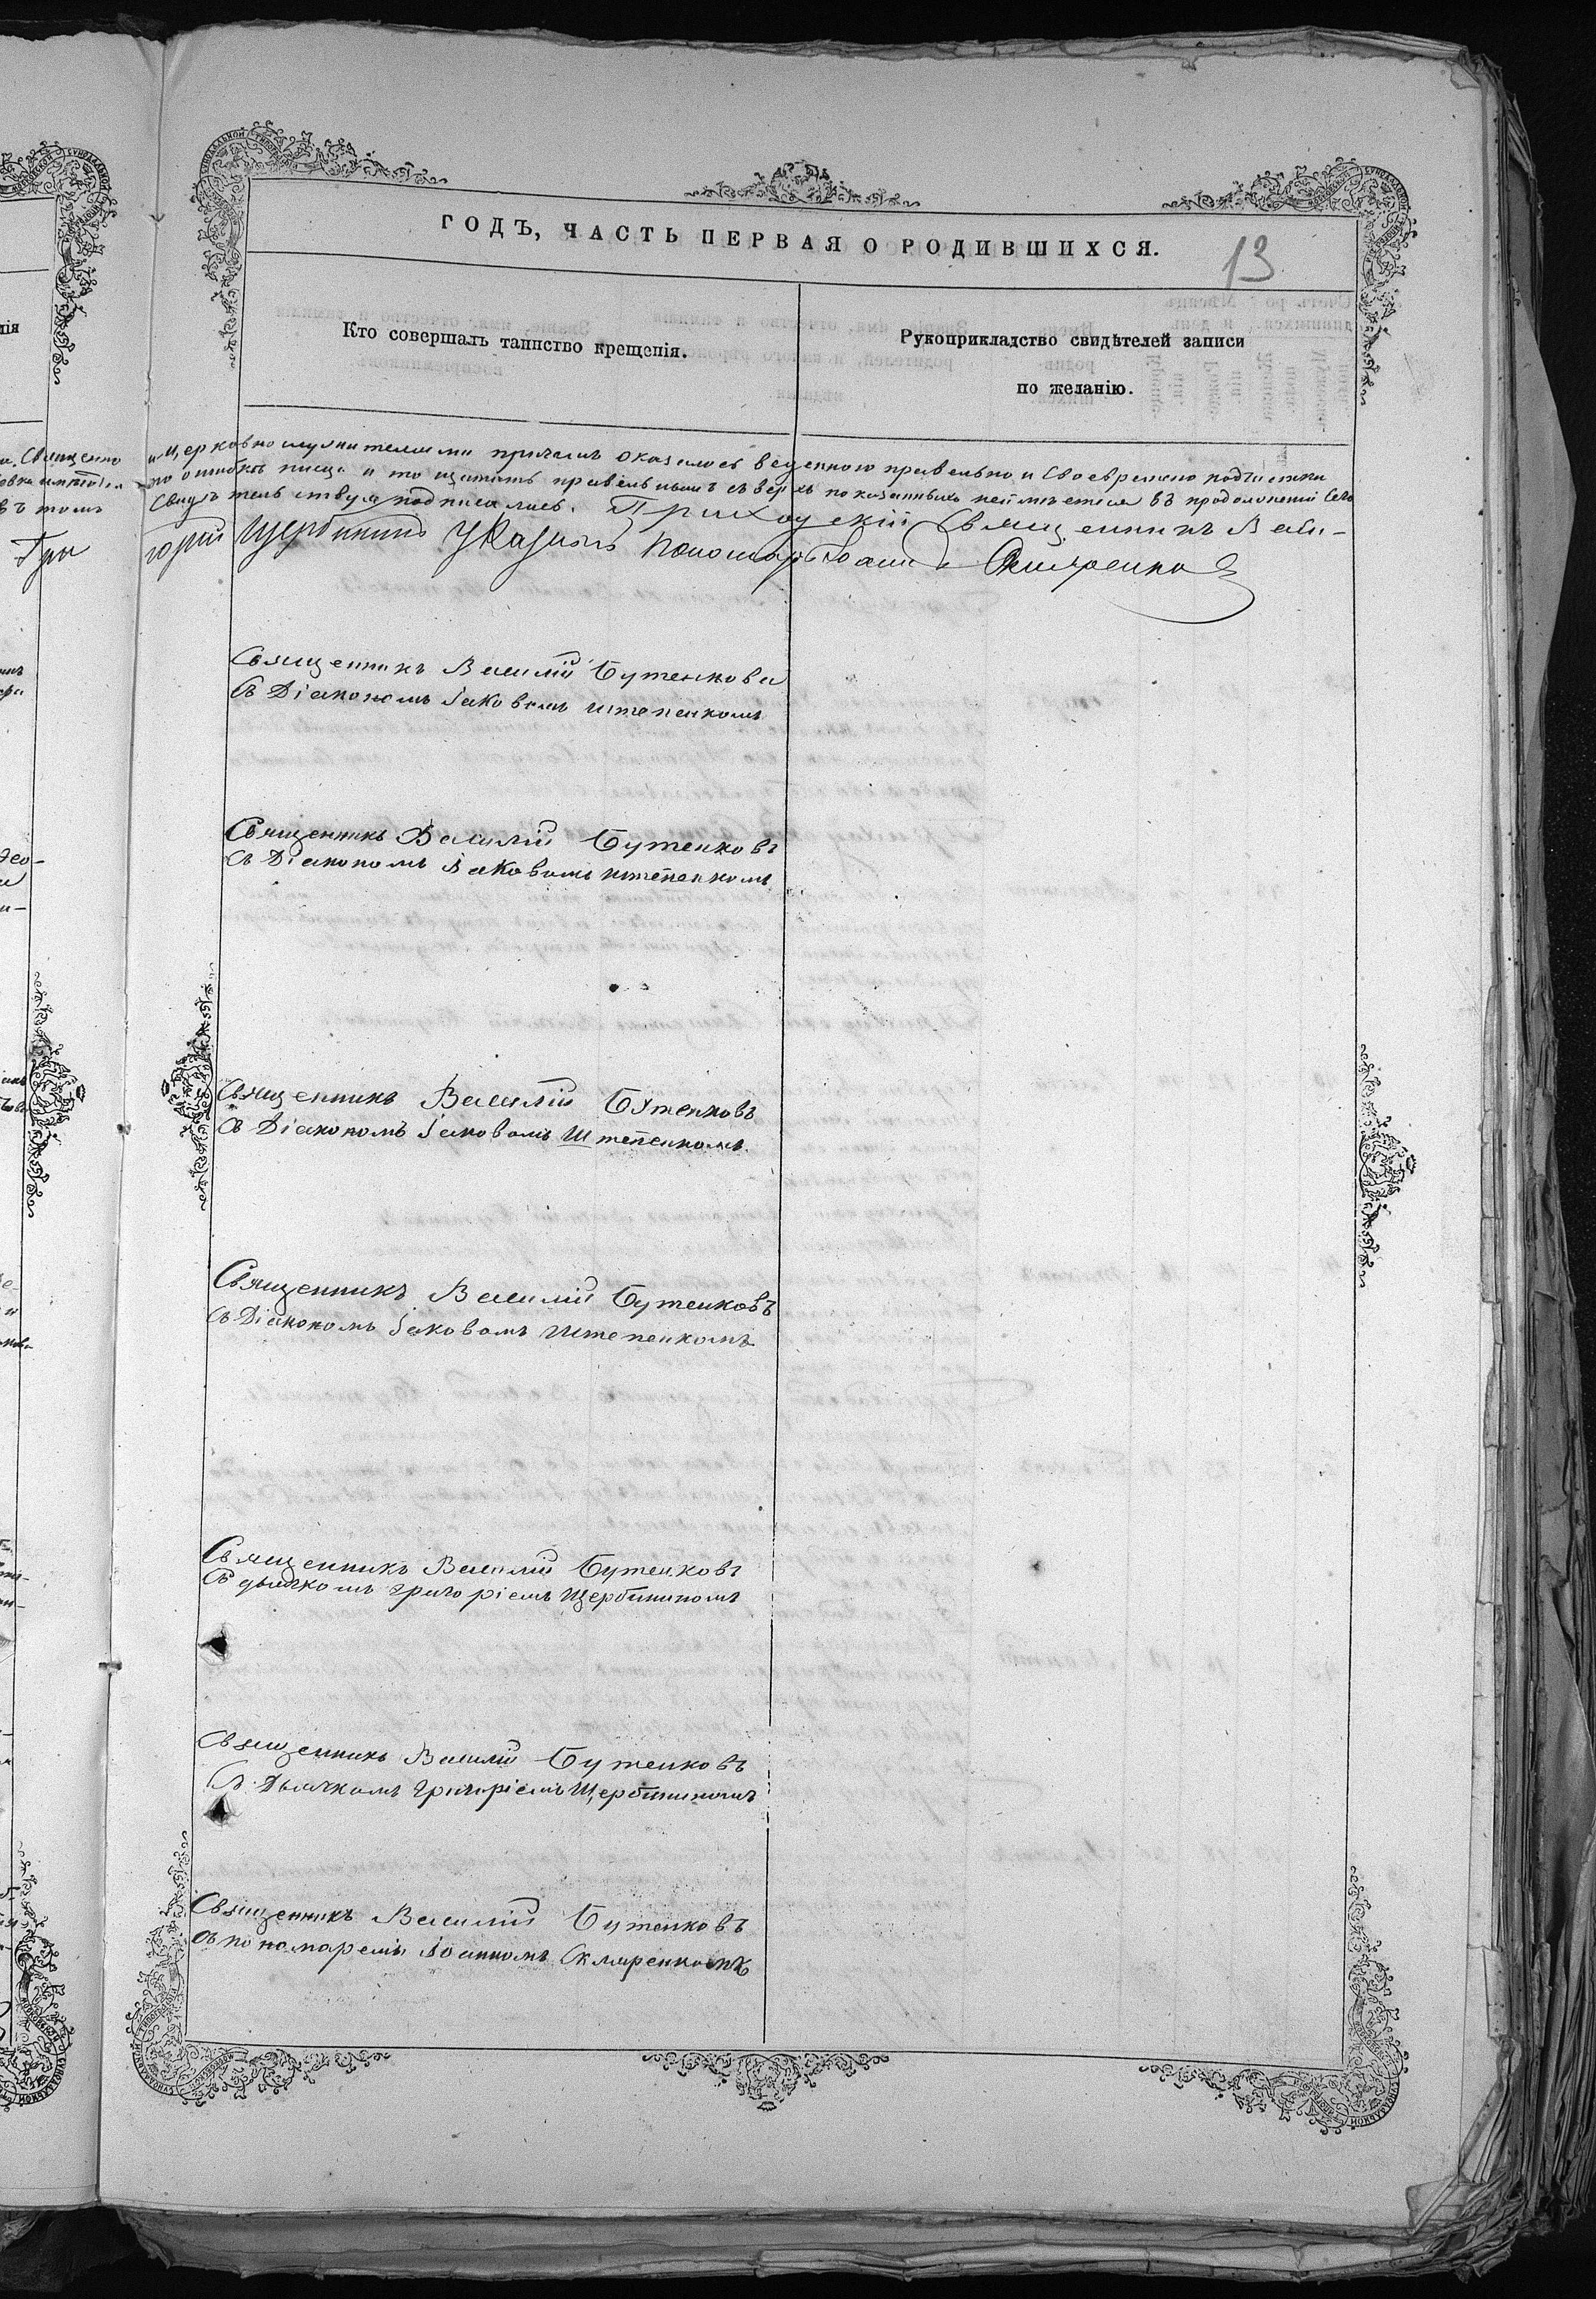 ГОДЪ, ЧАСТЬ ПЕРВАЯ О РОДИВШИХСЯ.
13
Кто совершалъ таинство крещенія.
Рукоприкладство свидѣтелей записи
по желанію.
и церковно служителями причтомъ оказалось веденною правельно и своевремено подчистки
по ошибкѣ писца и то щитать правельнымъ съверхъ показанныхъ неимѣется въ продолжении сего
свидѣтельствуя подписались. Приходский Священникъ Васи-
горий Щербининъ Указный Пономарь Іоаннъ Скляренко
Священникъ Василій Бутенковъ
Съ Діакономъ Іаковомъ Штепенкомъ
Священникъ Василій Бутенковъ
Съ Діакономъ Іаковомъ Штепенкомъ
Священникъ Василій Бутенковъ
Съ Діакономъ Іаковомъ Штепенкомъ.
Священникъ Василій Бутенковъ
Съ Діакономъ Іаковомъ Штепенкомъ
Священникъ Василій Бутенковъ
Съ дьячкомъ григоріемъ Щербининомъ
Священникъ Василій Бутенковъ
Съ Дьячкомъ Григоріемъ Щербининомъ
Священникъ Василій Бутенковъ
Съ пономаремъ Іоанномъ Скляренкомъ